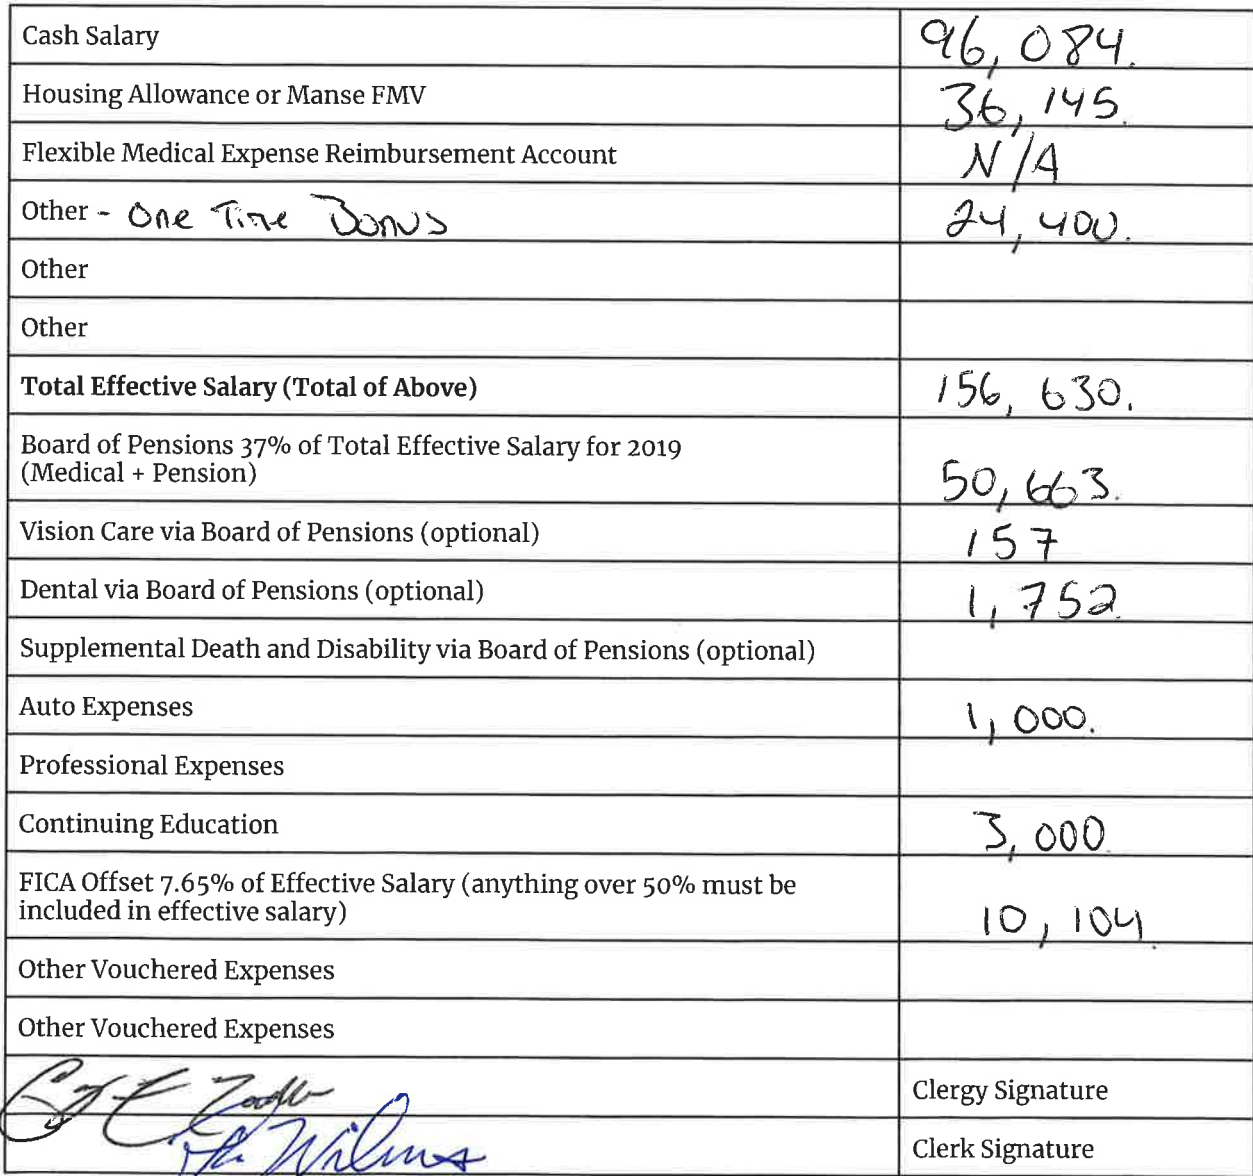 Cash Salary 96,084.
Housing Allowance or Manse FMV 36,145.
Flexible Medical Expense Reimbursement Account N/A
Other - One Time Bonus 24,400.
Other
Other
Total Effective Salary (Total of Above) 156,630.
Board of Pensions 37% of Total Effective Salary for 2019
(Medical + Pension) 50,663.
Vision Care via Board of Pensions (optional) 157
Dental via Board of Pensions (optional) 1,752.
Supplemental Death and Disability via Board of Pensions (optional)
Auto Expenses 1,000.
Professional Expenses
Continuing Education 3,000
FICA Offset 7.65% of Effective Salary (anything over 50% must be
included in effective salary) 10,104.
Other Vouchered Expenses
Other Vouchered Expenses
Clergy Signature
Clerk Signature